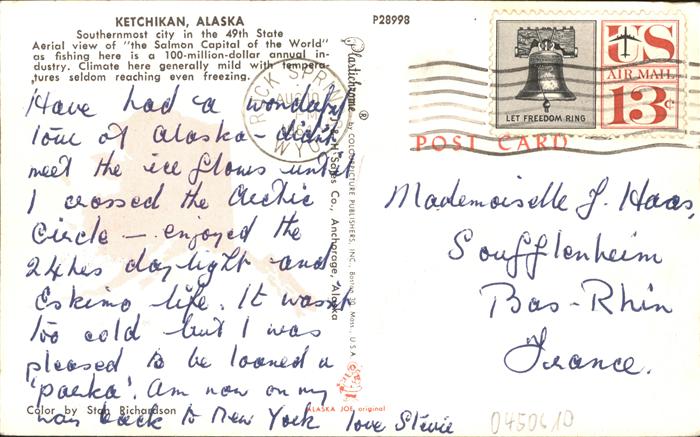 KETCHIKAN, ALASKA
Southernmost city in the 49th State
Aerial view of "the Salmon Capital of the World"
as fishing here is a 100-million-dollar annual in-
dustry. Climate here generally mild with tempera-
tures seldom reaching even freezing.
P28998
Have had a wonderful
tour of Alaska - didn't
meet the ice flows until
I crossed the Arctic
Circle - enjoyed the
24hrs daylight and
Eskimo life. It wasn't
too cold but I was
pleased to be loaned a
'parka'. Am now on my
way back to New York love Stevie
Color by Stan Richardson
ALASKA JOE original
Plastichrome ® by COLOURPICTURE PUBLISHERS, INC., Boston 30, Mass., U.S.A.
Sales Co., Anchorage, Alaska
ROCK SPRINGS
AUG 10
WYO
LET FREEDOM RING
US
AIR MAIL
13c
POST CARD
Mademoiselle J. Haas,
Soufflenheim
Bas-Rhin
France.
0450610